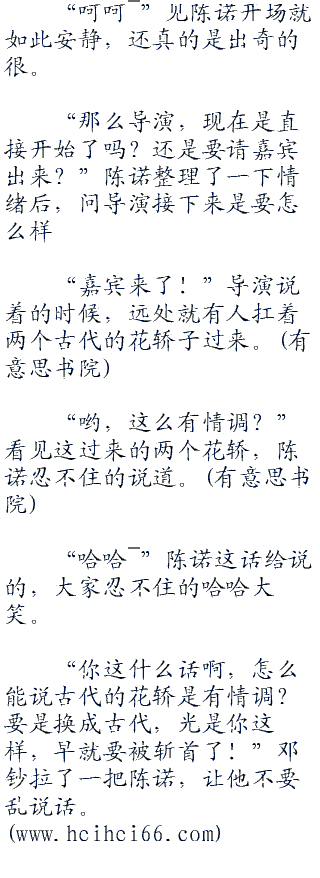 “呵呵¯”见陈诺开场就
如此安静，还真的是出奇的
很。
“那么导演，现在是直
接开始了吗？还是要请嘉宾
出来？”陈诺整理了一下情
绪后，问导演接下来是要怎
么样
“嘉宾来了！”导演说
着的时候，远处就有人扛着
两个古代的花轿子过来。(有
意思书院)
“哟，这么有情调？”
看见这过来的两个花轿，陈
诺忍不住的说道。(有意思书
院)
“哈哈¯”陈诺这话给说
的，大家忍不住的哈哈大
笑。
“你这什么话啊，怎么
能说古代的花轿是有情调？
要是换成古代，光是你这
样，早就要被斩首了！”邓
钞拉了一把陈诺，让他不要
乱说话。
(www.hcihci66.com)